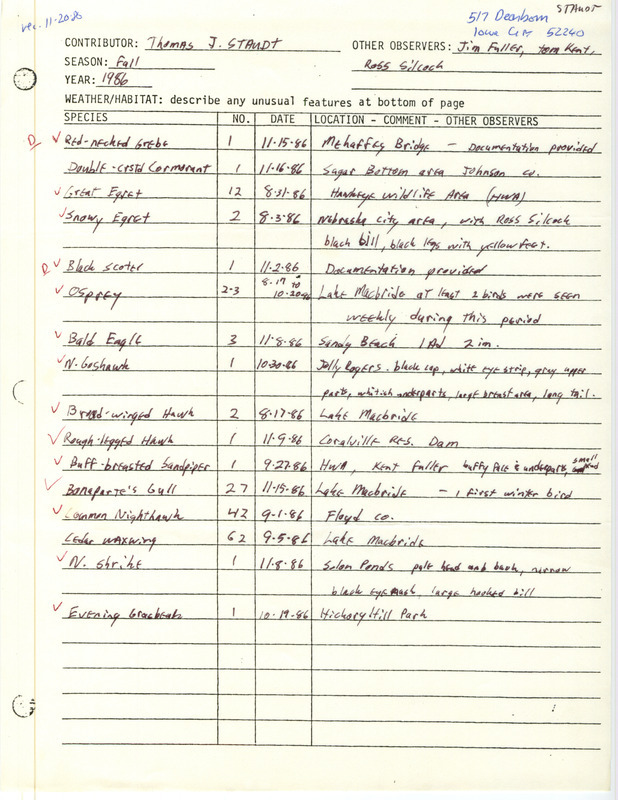 STAUDT
rec. 11-20-86
517 Dearborn
Iowa City 52240
CONTRIBUTOR: Thomas J. STAUDT OTHER OBSERVERS: Jim Fuller, Tom Kent,
SEASON: Fall Ross Silcock
YEAR: 1986
WEATHER/HABITAT: describe any unusual features at bottom of page
SPECIES NO. DATE LOCATION - COMMENT - OTHER OBSERVERS
D ✓ Red-necked Grebe 1 11-15-86 Mehaffey Bridge - Documentation provided
Double-crstd Cormorant 1 11-16-86 Sugar Bottom area Johnson co.
✓ Great Egret 12 8-31-86 Hawkeye Wildlife Area (HWA)
✓ Snowy Egret 2 8-3-86 Nebraska City area, with Ross Silcock
black bill, black legs with yellow feet.
D ✓ Black Scoter 1 11-2-86 Documentation provided
✓ Osprey 2-3 8-17 to 10-20-86 Lake Macbride at least 2 birds were seen
weekly during this period
✓ Bald Eagle 3 11-8-86 Sandy Beach 1 Ad 2 im.
✓ N. Goshawk 1 10-30-86 Jolly Rogers. black cap, white eye strip, gray upper
parts, whitish underparts, large breast area, long tail.
✓ Broad-winged Hawk 2 8-17-86 Lake Macbride
✓ Rough-legged Hawk 1 11-9-86 Coralville Res. Dam
✓ Buff-breasted Sandpiper 1 9-27-86 HWA, Kent Fuller buffy face & underparts, small head
✓ Bonaparte's Gull 27 11-15-86 Lake Macbride - 1 first winter bird
✓ Common Nighthawk 42 9-1-86 Floyd co.
Cedar Waxwing 62 9-5-86 Lake Macbride
✓ N. Shrike 1 11-8-86 Solon Ponds pale head and back, narrow
black eye mask large hooked bill
✓ Evening Grosbeak 1 10-19-86 Hickory Hill Park